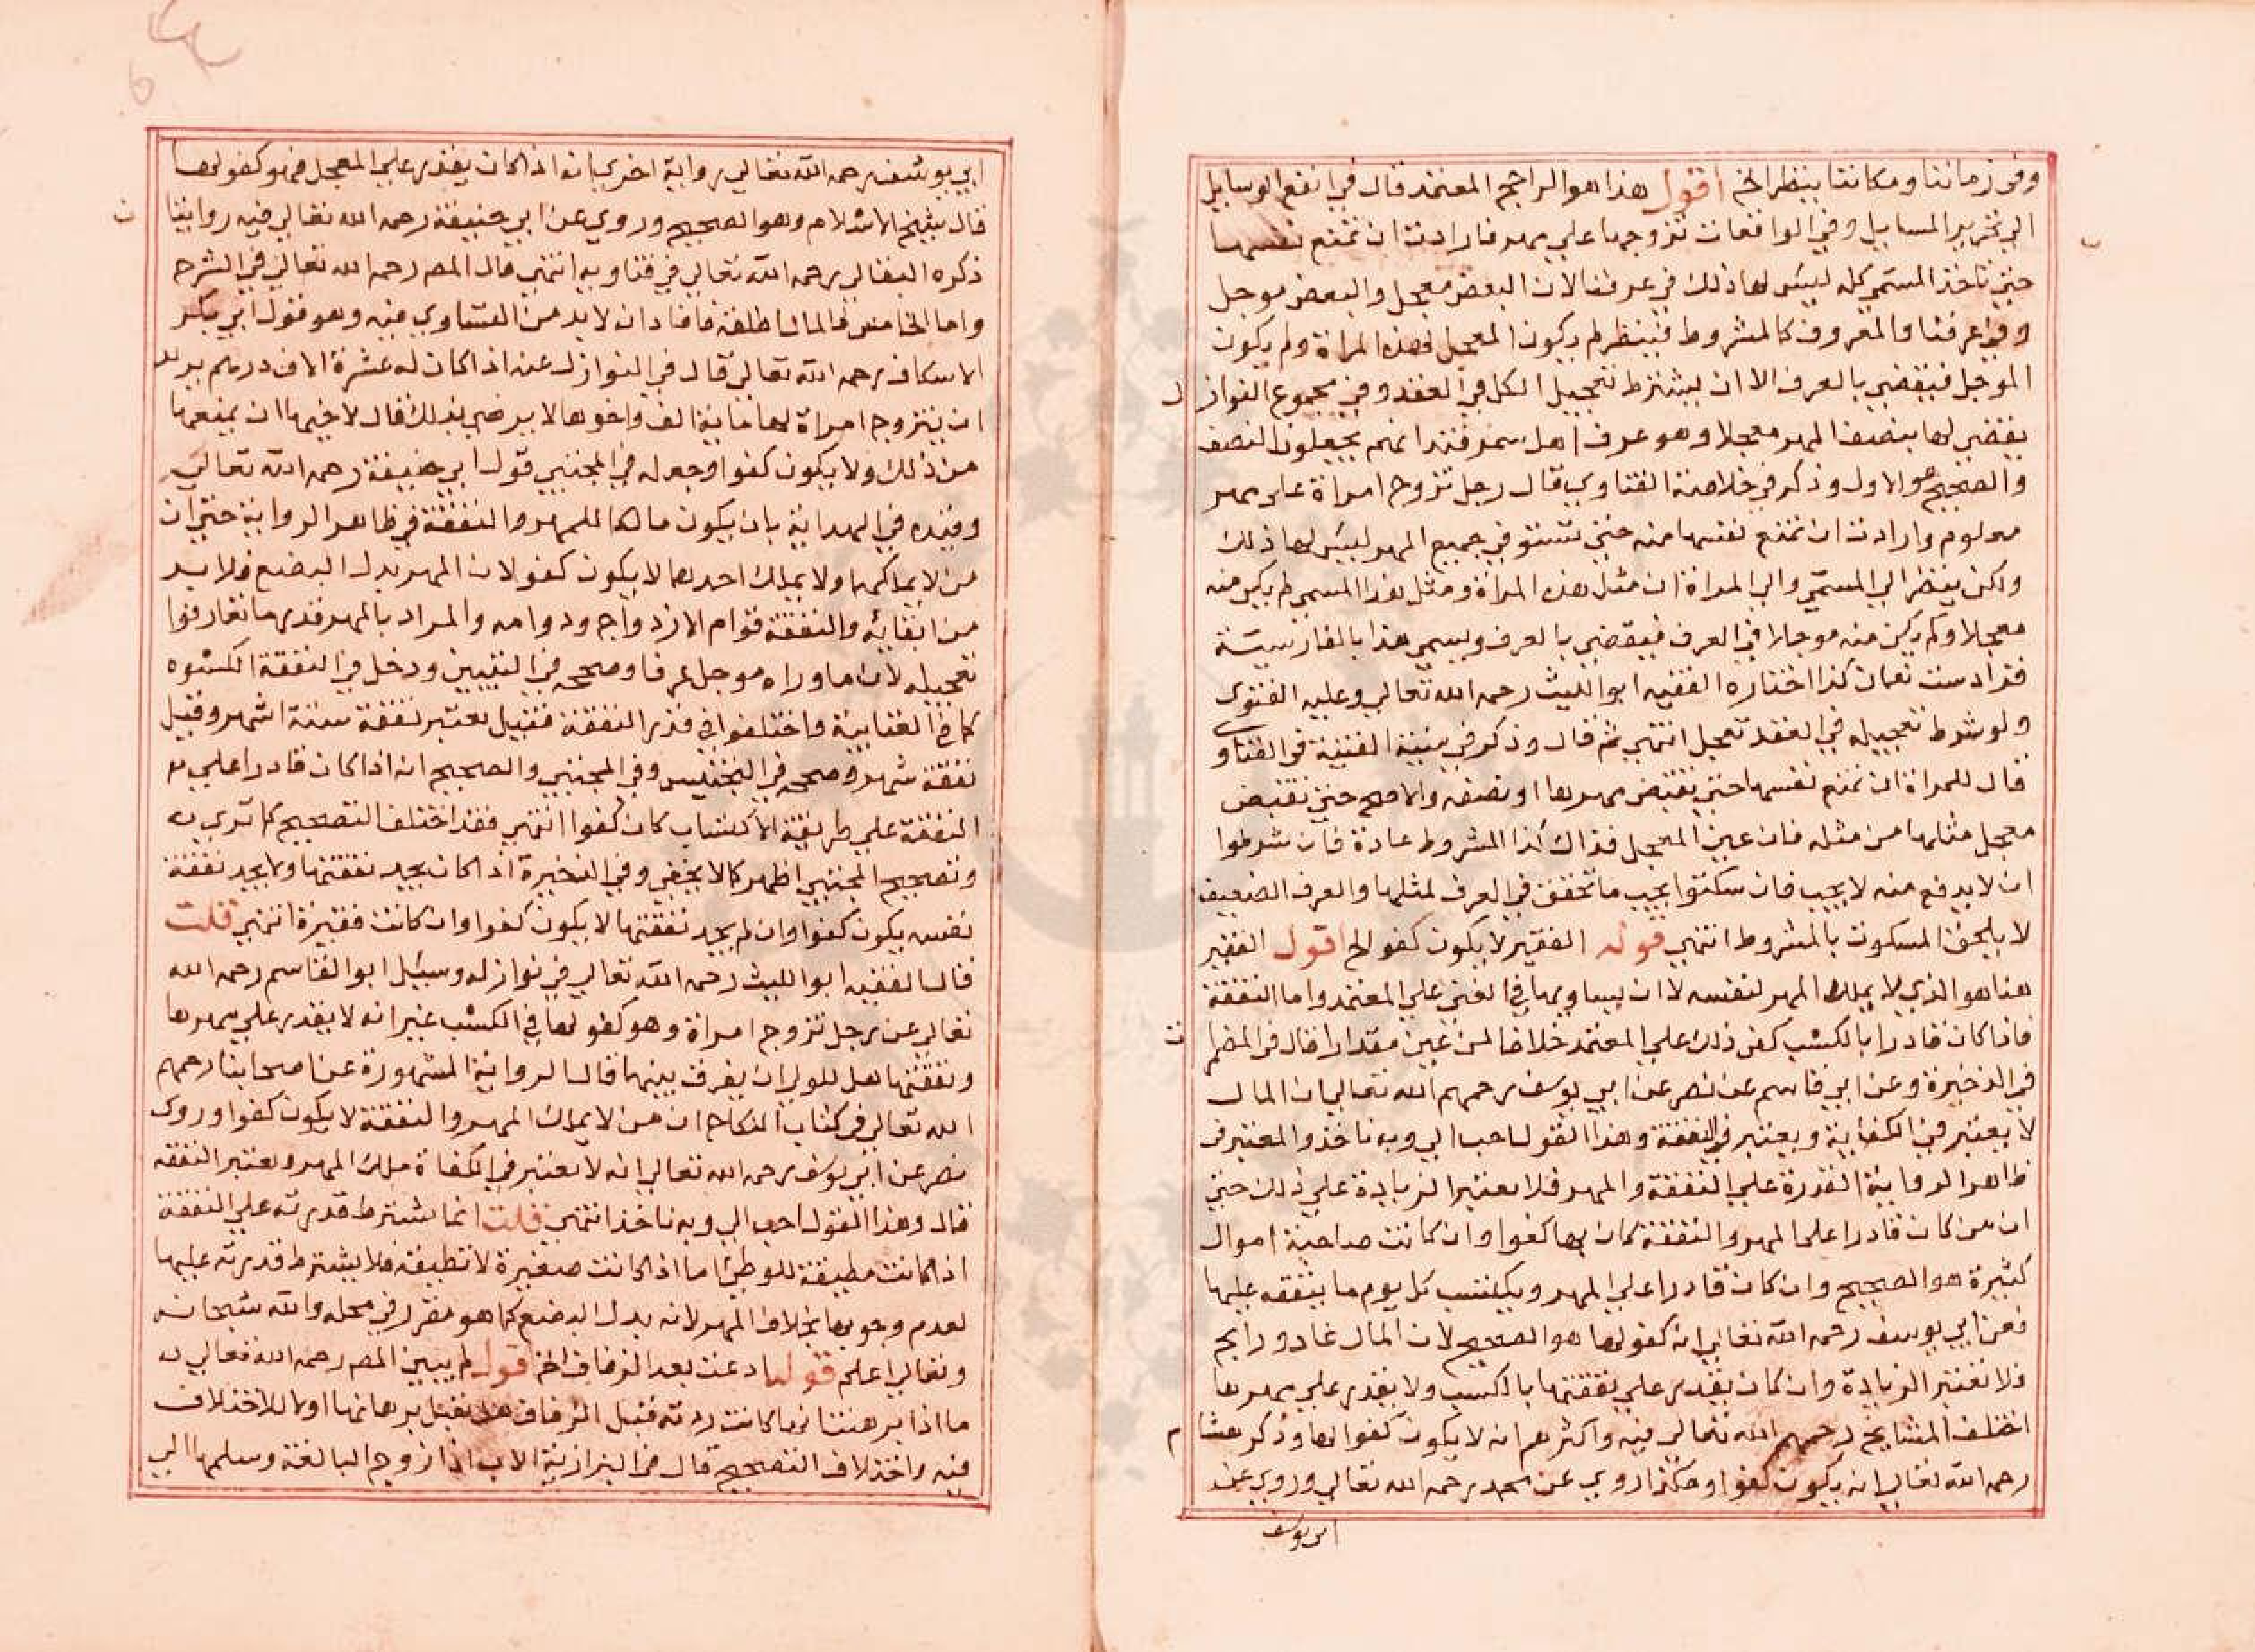 وفي زماننا ومكاننا ينظر الخ اقول هذا هو الراجح المعتمد قال في انفع الوسايل
الي تحرير المسايل وفي الواقعات تزوجها علي مهر فارادت ان تمنع نفسها
حتي تاخذ المسمي كله ليس لها ذلك في عرفنا لان البعض معجل والبعض موجل
وفي عرفنا والمعروف كالمشروط فينظر كم يكون المعجل لهذه المراة وكم يكون
الموجل فيقضي بالعرف الا ان يشترط تعجيل الكل في العقد وفي مجموع النوازل
يقضي لها بنصف المهر معجلا وهو عرف اهل سمرقند انهم يجعلون النصف
والصحيح هو الاول وذكر في خلاصة الفتاوي قال رجل تزوج امراة على مهر
معلوم وارادت ان تمنع نفسها منه حتي تستوفي جميع المهر ليس لها ذلك
ولكن ينظر الي المسمي والي المراة ان مثل هذه المراة ومثل هذا المسمي كم يكن منه
معجلا وكم يكن منه موجلا في العرف فيقضي بالعرف ويسمي هذا بالفارسية
كذا اختاره الفقيه ابو الليث رحمه الله تعالي وعليه الفتوى
ولو شرط تعجيله في العقد تعجل انتهي ثم قال وذكر في منية الفتاو
قال للمراة ان تمنع نفسها حتي تقبض مهرها او نصفه والاصح حتي تقبض
معجل مثلها من مثله فان عين المعجل فذاك كذا المشروط عادة فان شرطوا
ان لا يدفع منه لا يجب فان سكتوا يجب ما تحقق في العرف لمثلها والعرف الضعيف
لا يلحق المسكوت بالمشروط انتهي قوله الفقير لا يكون كفوا الخ اقول الفقير
هنا هو الذي لا يملك المهر لنفسه لا ان يساويها في الغني علي المعتمد واما النفقة
فاذا كان قادرا بالكسب كفي ذلك علي المعتمد خلافا لمن عين مقدارا قال في
في الذخيرة وعن ابي قاسم عن نصر عن ابي يوسف رحمهم الله تعالي ان المال
لا يعتبر في الكفاية ويعتبر في النفقة وهذا القول احب الي وبه ناخذ والمعتبر في
ظاهر الرواية القدرة علي النفقة والمهر فلا يعتبر الزيادة علي ذلك حتي
ان من كان قادرا على المهر والنفقة كان لها كفوا وان كانت صاحبة اموال
كثيرة هو الصحيح وان كان قادرا علي المهر ويكتسب كل يوم ما ينفقه عليها
فعن ابي يوسف رحمه الله تعالي انه كفو لها هو الصحيح لان المال غاد ورايح
فلا تعتبر الزيادة وان كان يقدر علي نفقتها بالكسب ولا يقدر علي مهرها
اختلف المشايخ رحمهم الله تعالي فيه واكثرهم انه لا يكون كفوا لها وذكر هشام
رحمه الله تعالي انه يكون كفوا وهكذا روي عن محمد رحمه الله تعالي وروي عن
ابي يوسف
ابي يوسف رحمه الله تعالي رواية اخري انه اذا كان يقدر علي المعجل فهو كفو لها
قال شيخ الاسلام وهو الصحيح وروي عن ابي حنيفة رحمه الله تعالي فيه روايتان
ذكره البقالي رحمه الله تعالي في فتاويه انتهي قال المص رحمه الله تعالي في الشرح
واما الخامس فالمال اطلقه فافاد ان لا بد من التساوي فيه وهو قول ابي بكر
الاسكاف رحمه الله تعالي قال في النوازل عنه اذا كان له عشرة الاف درهم يريد
ان يتزوج امراة لها ماية الف واخوها لا يرضي بذلك قال لاخيها ان يمنعها
من ذلك ولا يكون كفوا وجعله في المجتبي قول ابي حنيفة رحمه الله تعالي
وقيده في الهداية بان يكون مالكا للمهر والنفقة في ظاهر الرواية حتي ان
من لا يملكهما ولا يملك احدهما لا يكون كفو لان المهر بدل البضع فلا بد
من ايفائه والنفقة قوام الازدواج ودوامه والمراد بالمهر قدر ما تعارفوا
تعجيله لان ما وراه موجل عرفا وصححه في التبيين ودخل في النفقة الكسوه
كما في العتابية واختلفوا في قدر النفقة فقيل يعتبر نفقة ستة اشهر وقيل
نفقة شهر وصححه في التجنيس وفي المجتبي والصحيح انه اذا كان قادرا علي
النفقة علي طريقة الاكتساب كان كفوا انتهي فقد اختلف التصحيح كما تري
وتصحيح المجتبي اظهر كما لا يخفي وفي الذخيرة اذا كان يجد نفقتها ولا يجد نفقة
نفسه يكون كفوا وان لم يجد نفقتها لا يكون كفوا وان كانت فقيرة انتهي قلت
قال الفقيه ابو الليث رحمه الله تعالي في نوازله وسئل ابو القاسم رحمه الله
تعالي عن رجل تزوج امراة وهو كفو لها في الكسب غير انه لا يقدر علي مهرها
ونفقتها هل للولي ان يفرق بينهما قال الرواية المشهورة عن اصحابنا رحمهم
الله تعالي في كتاب النكاح ان من لا يملك المهر والنفقة لا يكون كفوا وروى
نصر عن ابي يوسف رحمه الله تعالي انه لا يعتبر في الكفاة ملك المهر ويعتبر النفقه
قال وهذا القول احب الي وبه ناخذ انتهي قلت انما يشترط قدرته علي النفقة
اذا كانت مطيقة للوطئ اما اذا كانت صغيرة لا تطيقه فلا يشترط قدرته عليها
لعدم وجوبها بخلاف المهر لانه بدل البضع كما هو مقرر في محله والله سبحانه
وتعالي اعلم قوله ادعت بعد الزفاف الخ اقول لم يبين المص رحمه الله تعالي
ما اذا برهنت انها كانت ردته قبل الزفاف هل يقبل برهانها اولا للاختلاف
فيه واختلاف التصحيح قال في البزازية الاب اذا زوج البالغة وسلمها الي